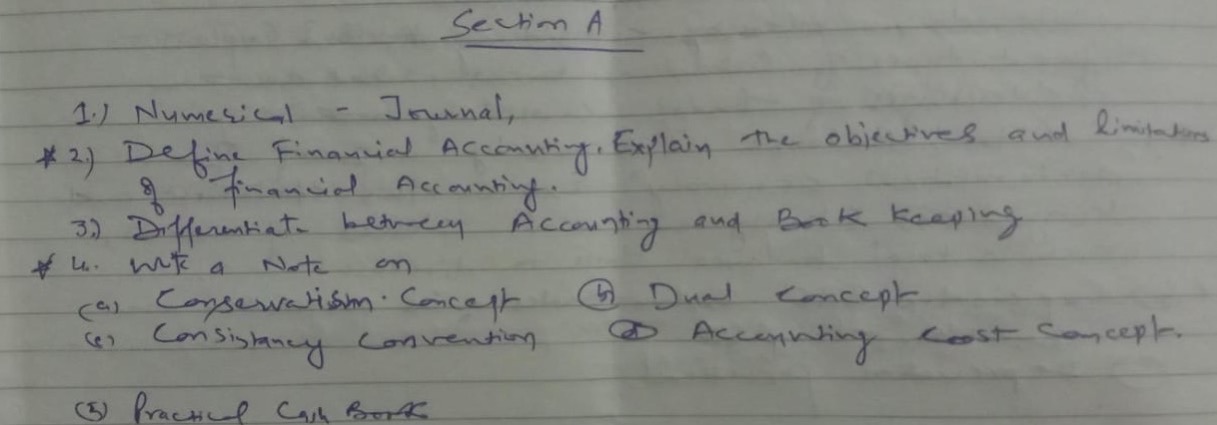 Section A
1.) Numerical - Journal,
* 2.) Define Financial Accounting. Explain the objectives and limitations
of financial Accounting.
3.) Differentiate between Accounting and Book Keeping
* 4. Write a Note on
(a) Conservatism. Concept (b) Dual concept
(c) Consistancy convention (d) Accounting cost concept.
(5) Practical Cash Book